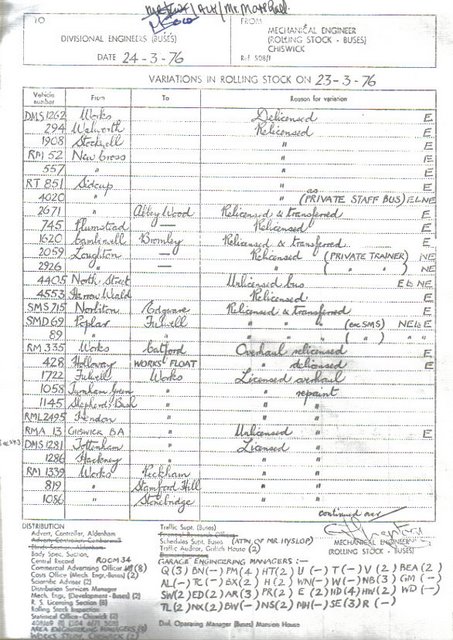 TO
FROM
DIVISIONAL ENGINEERS (BUSES)
MECHANICAL ENGINEER
(ROLLING STOCK - BUSES)
CHISWICK
DATE 24-3-76
VARIATIONS IN ROLLING STOCK ON 23-3-76
Vehicle number From To Reason for variation
DMS 1262 Works Delicensed E
294 Walworth Relicensed E
1908 Stockwell " E
RM 52 New Cross " E
557 " " E
RT 851 Sidcup " E
4020 " " (as PRIVATE STAFF BUS) E
2671 " Abbey Wood Relicensed & transferred E
745 Plumstead — Relicensed E
1620 Camberwell Bromley Relicensed & transferred E
2059 Loughton — Relicensed (PRIVATE TRAINER) NE
2926 " — " ( " " ) NE
4405 North Street Unlicensed bus E & NE
4553 Harrow Weald Relicensed E
SMS 715 Norbiton Edgware Relicensed & transferred E
SMD 69 Poplar Fulwell " " " (ex SMS) NE & E
89 " " " " " ( " ) " "
RM 335 Works Catford Overhaul relicensed E
428 Holloway WORKS FLOAT " delicensed E
1722 Fulwell Works Licensed overhaul
1058 Turnham Green " " repaint
1145 Shepherds Bush " " "
RML 2495 Hendon " " "
RMA 13 CHISWICK BA " Unlicensed " E
DMS 1281 Tottenham " Licensed "
1286 Hackney " " "
RM 1339 Works Peckham " "
819 " Stamford Hill " "
1086 " Stonebridge " "
continued over
DISTRIBUTION
MECHANICAL ENGINEER
(ROLLING STOCK - BUSES)
Advert. Controller, Aldenham
Body Spec. Section
Central Record ROOM 34
Commercial Advertising Officer
Costs Office (Mech. Engr.-Buses) (2)
Scientific Adviser (2)
Distribution Services Manager
Mech. Engr. (Development - Buses) (2)
R. S. Licensing Section (6)
Rolling Stock Inspection
Traffic Supt. (Buses)
Schedules Supt. Buses (ATTN OF MR HYSLOP)
Traffic Auditor, Griffith House (2)
GARAGE ENGINEERING MANAGERS :-
Q(3) BN(-) PM(2) HT(2) U(-) T(-) V(2) BEA(2)
AL(-) TC(-) BX(2) H(2) WN(-) W(-) NB(3) GM(-)
SW(2) ED(2) AR(3) PR(2) E(2) HD(4) HW(2) WD(-)
TL(2) NX(2) BW(-) NS(2) MH(-) SE(3) R(-)
Divl. Operating Manager (Buses) Mansion House